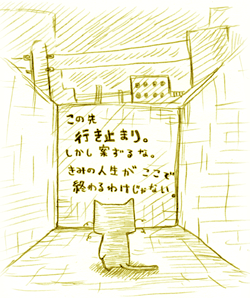 この先
行き止まり。
しかし案ずるな。
きみの人生がここで
終わるわけじゃない。